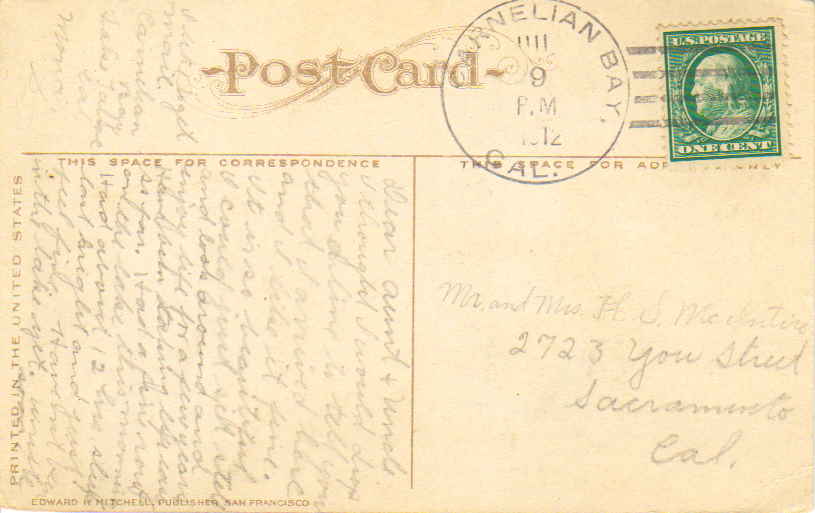 Post Card
CARNELIAN BAY,
CAL.
9
P.M
1912
U.S. POSTAGE
ONE CENT
THIS SPACE FOR CORRESPONDENCE
THIS SPACE FOR ONLY
PRINTED IN THE UNITED STATES
EDWARD H. MITCHELL, PUBLISHER, SAN FRANCISCO
Dear Aunt & Uncle.
I thought I would drop
you a line to tell you
that I arrived here
and I like it fine.
It is so beautiful
I could just set still
and look around and
enjoy life for a few years
Have been
so far. Had a fine row
on the lake this morning
Had about 12 hrs sleep
last night and just
feel fine. Haven't been
in the lake yet.
mail.
Carnelian
Bay
Lake Tahoe
Cal
Mr. and Mrs. H. S. McIntire
2723 You Street
Sacramento
Cal.